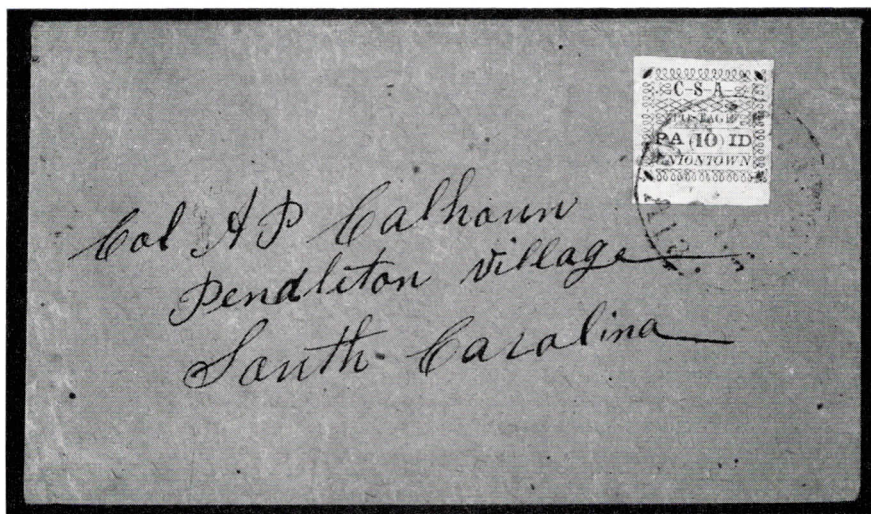 C-S-A-
POSTAGE
PA 10 ID
UNIONTOWN
Col A P Calhoun
Pendleton Village
South Carolina